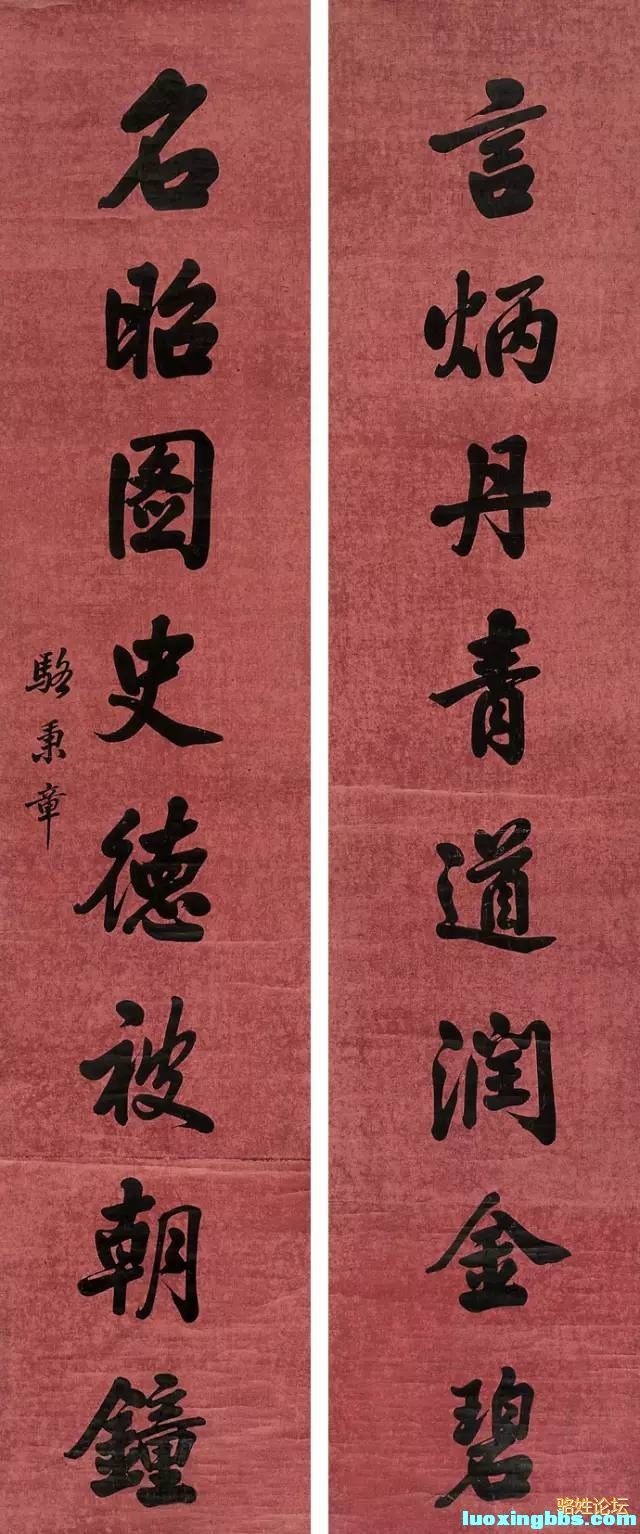 言炳丹青道润金碧
名昭图史德被朝鐘
駱秉章
骆姓论坛
luoxingbbs.com